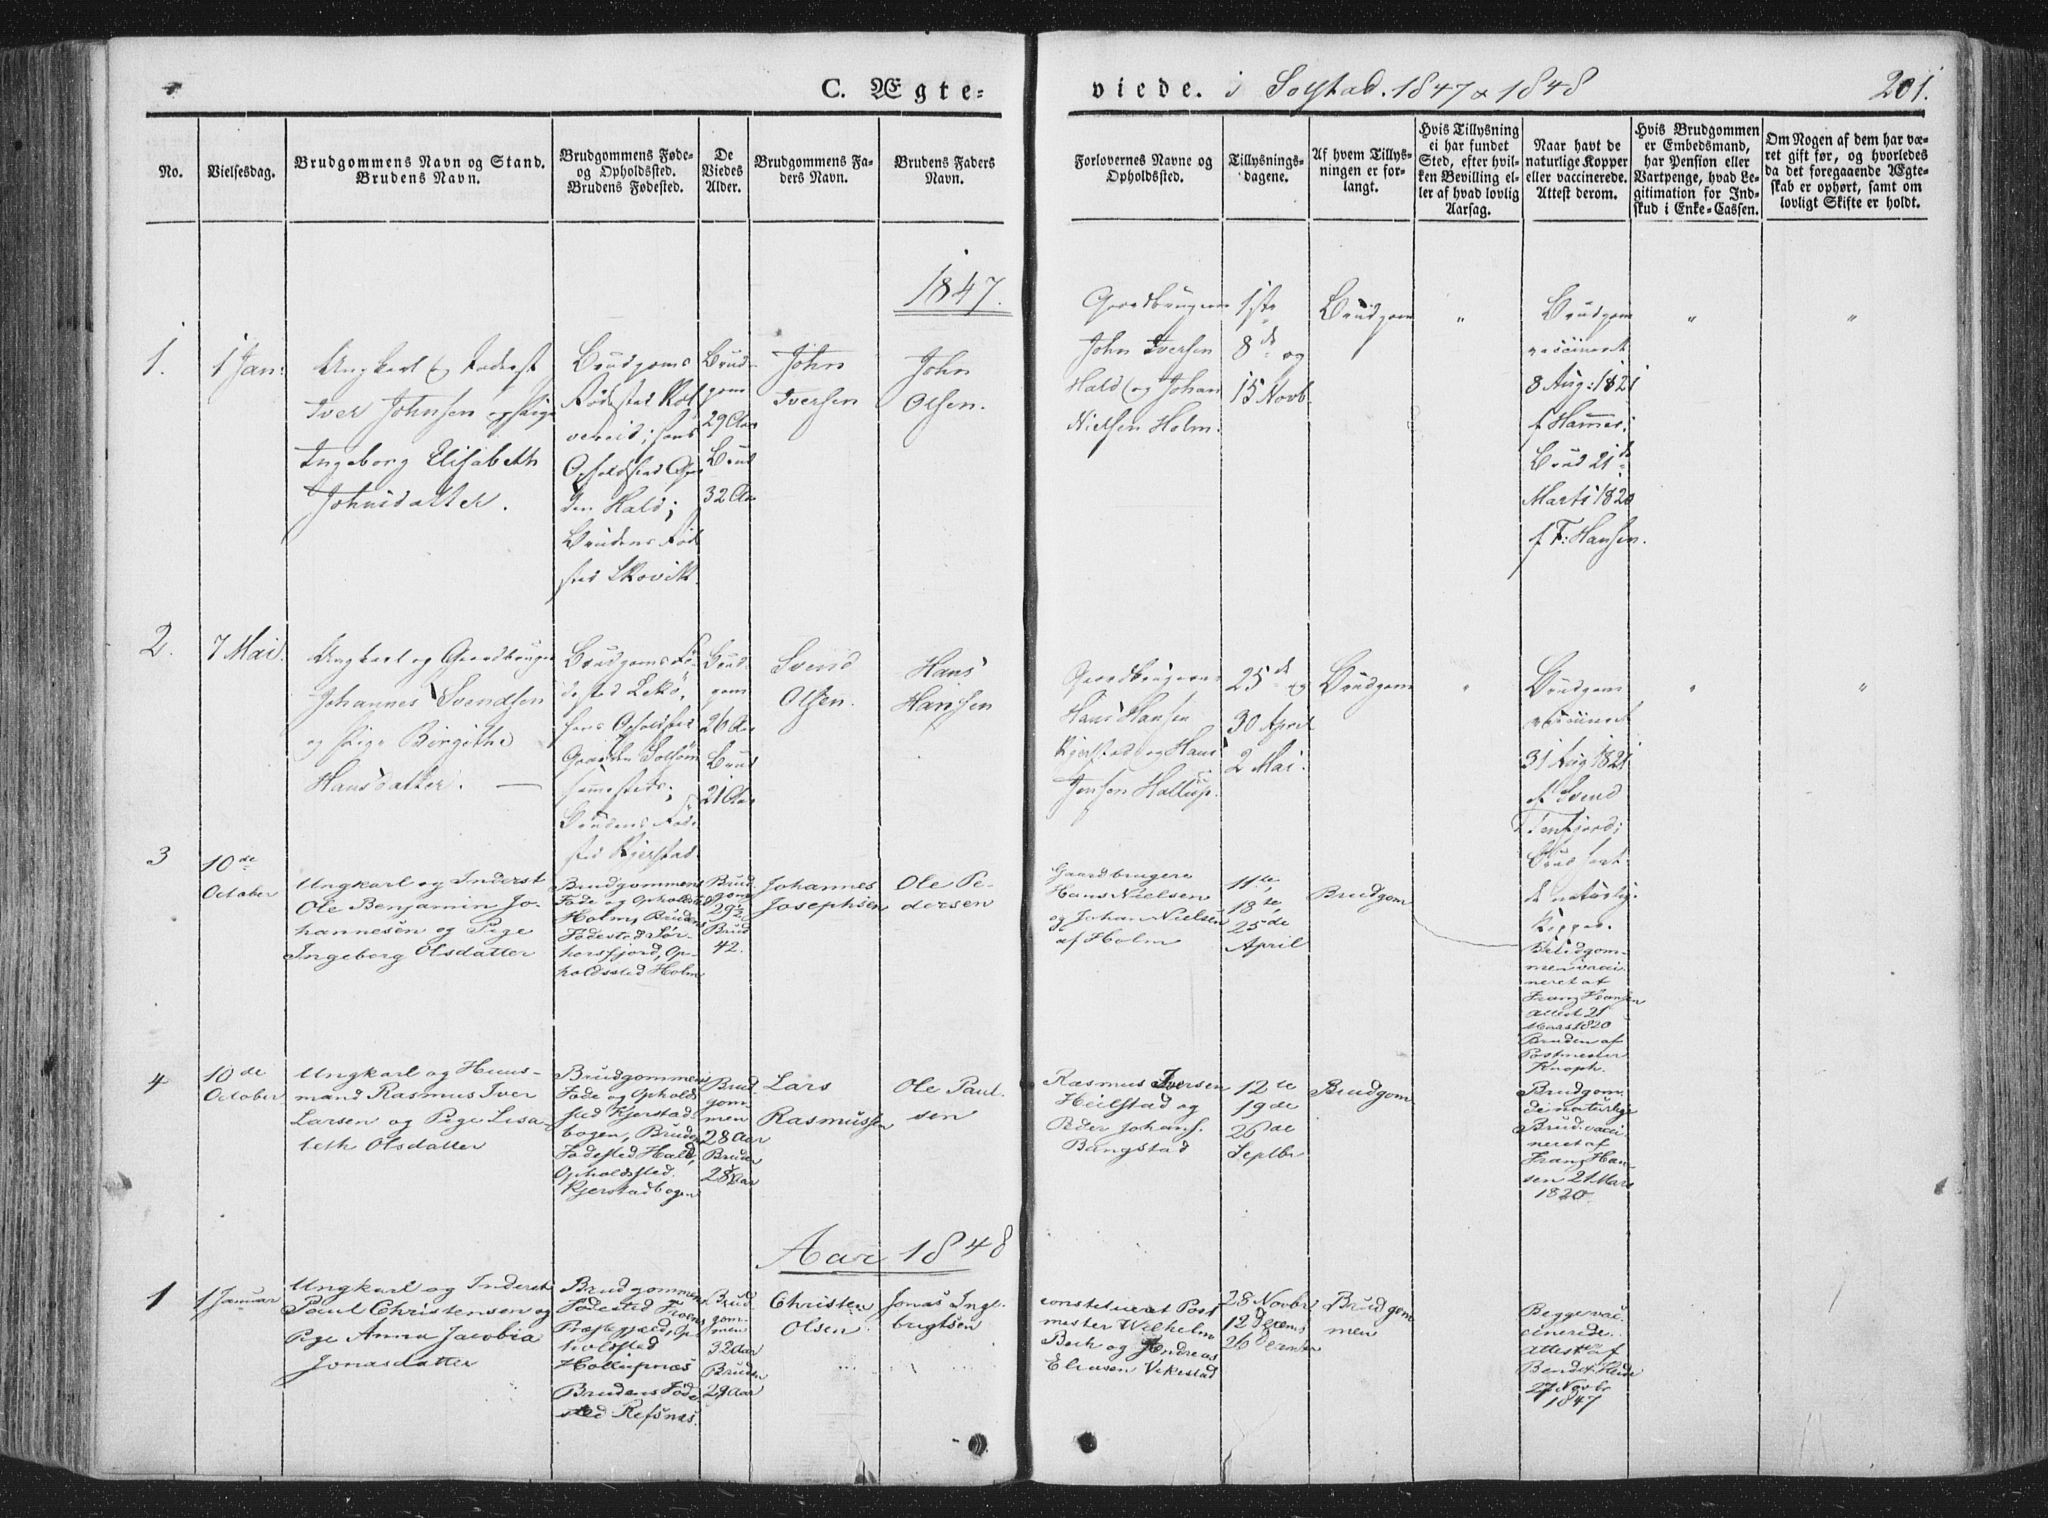 C. Ægte-
viede. i Solstad. 1847 & 1848
201.
No.
Vielsesdag.
Brudgommens Navn og Stand.
Brudens Navn.
Brudgommens Føde-
og Opholdsted.
Brudens Fødested.
De
Viedes
Alder.
Brudgommens Fa-
ders Navn.
Brudens Faders
Navn.
Forlovernes Navne og
Opholdsted.
Tillysnings-
dagene.
Af hvem Tillys-
ningen er for-
langt.
Hvis Tillysning
ei har fundet
Sted, efter hvil-
ken Bevilling el-
ler af hvad lovlig
Aarsag.
Naar havt de
naturlige Kopper
eller vaccinerede.
Attest derom.
Hvis Brudgommen
er Embedsmand,
har Pension eller
Vartpenge, hvad Le-
gitimation for Ind-
skud i Enke-Cassen.
Om Nogen af dem har væ-
ret gift før, og hvorledes
da det foregaaende Ægte-
skab er ophørt, samt om
lovligt Skifte er holdt.
1847.
1.
1 Jan:
Ungkarl og Inderst
Iver Johnsen og Pige
Ingeborg Elisabeth
Johnsdatter.
Brudgoms
Fødested Kol
vereid; hans
Opholdsted Gaar
den Hald;
Brudens Fød
sted Skovik.
Brud-
gom
29 Aar
Brud
32 Aar
John
Iversen
John
Olsen.
Gaardbrugerne
John Iversen
Hald og Johan
Nielsen Holm.
1ste
8de og
15 Novb.
Brudgom
"
Brudgom
vaccineret
8 Aug: 1821
f Hammer;
Brud 21de
Marts 1820
f F: Hansen.
"
"
2.
7 Mai.
Ungkarl og Gaardbruger
Johannes Svendsen
og Pige Birgithe
Hansdatter. —
Brudgoms Fø-
dested Lekø,
hans Opholdsted
Gaarden Solsøm
sammesteds;
Brudens Føde
sted Kjerstad.
Brud-
gom
26 Aar
Brud
21 Aar
Svend
Olsen.
Hans
Hansen
Gaardbrugerne
Hans Hansen
Kjerstad og Hans
Jensen Hallup.
25de og
30 April
2 Mai.
Brudgom
"
Brudgom
vaccineret
31 Aug 1821
f Svend
Tenfjord;
Brud havt
de naturlige
Kopper.
"
"
3
10de
October
Ungkarl og Inderst
Ole Benjamin Jo-
hannesen og Pige
Ingeborg Olsdatter
Brudgommens
Føde og Opholdsted
Holm, Brudens
Fødested Sør-
horsfjord, Op-
holdssted Holm
Brud-
gom
29½
Brud
42.
Johannes
Josephsen
Ole Pe-
dersen
Gaardbrugere
Hans Nielsen
og Johan Nielsen
af Holm
11te,
18te,
25de
April
Brudgom
Brudgom-
men vacci-
neret af
Franz Hansen
attest 21
Mars 1820
Bruden af
Postmester
Knoph.
4
10de
October
Ungkarl og Huus-
mand Rasmus Iver
Larsen og Pige Lisa-
beth Olsdatter
Brudgommens
Føde og Ophold-
sted Kjerstad-
bogen, Brudens
Fødested Hald,
Opholdssted
Kjerstadbogen
Brud
gom-
men
28 Aar
Bruden
28 Aar
Lars
Rasmussen
Ole Paul-
sen
Rasmus Iversen
Heilstad og
Peder Johans.
Bangstad
12te
19de
26de
Septbr
Brudgom
Brudgom-
de naturlige
Brud vacci-
neret af
Franz Han-
sen 21 Mars
1820.
Aar 1848
1
1 Januar
Ungkarl og Inderst
Paul Christensen og
Pige Anna Jacobia
Jonasdatter
Brudgommens
Fødested Foens
Præstegjeld, Op-
holdsted
Hollupnæs
Brudens Føde-
sted Refsnæs.
Brud
gom-
men
32 Aar
Bruden
29 Aar
Christen
Olsen
Jonas Inge-
brigtsen
constitueret Post
mester Wilhelm
Boch og Andreas
Eliasen Vikestad
28 Novbr
12 Decem
26 December
Brudgom
men
Begge vac-
cinerede.
attest af
Bendix Heide
27 Novbr
1847